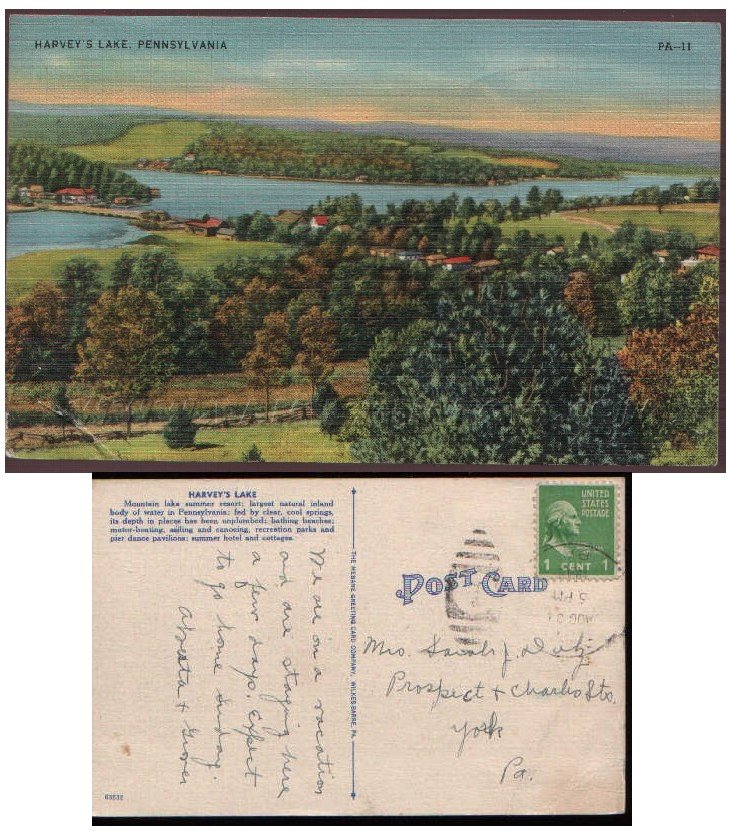 HARVEY'S LAKE, PENNSYLVANIA
PA-11
HARVEY'S LAKE
Mountain lake summer resort; largest natural inland
body of water in Pennsylvania; fed by clear, cool springs,
its depth in places has been unplumbed; bathing beaches;
motor-boating, sailing and canoeing, recreation parks and
pier dance pavilions; summer hotel and cottages.
We are on a vacation
and are staying here
a few days. Expect
to go home Sunday.
& Grover
63532
THE MEBANE GREETING CARD COMPANY, WILKES-BARRE, PA.
POST CARD
UNITED
STATES
POSTAGE
1 CENT 1
5 PM
AUG
Mrs. Sarah J.
Prospect + Charles Sts.
York
Pa.